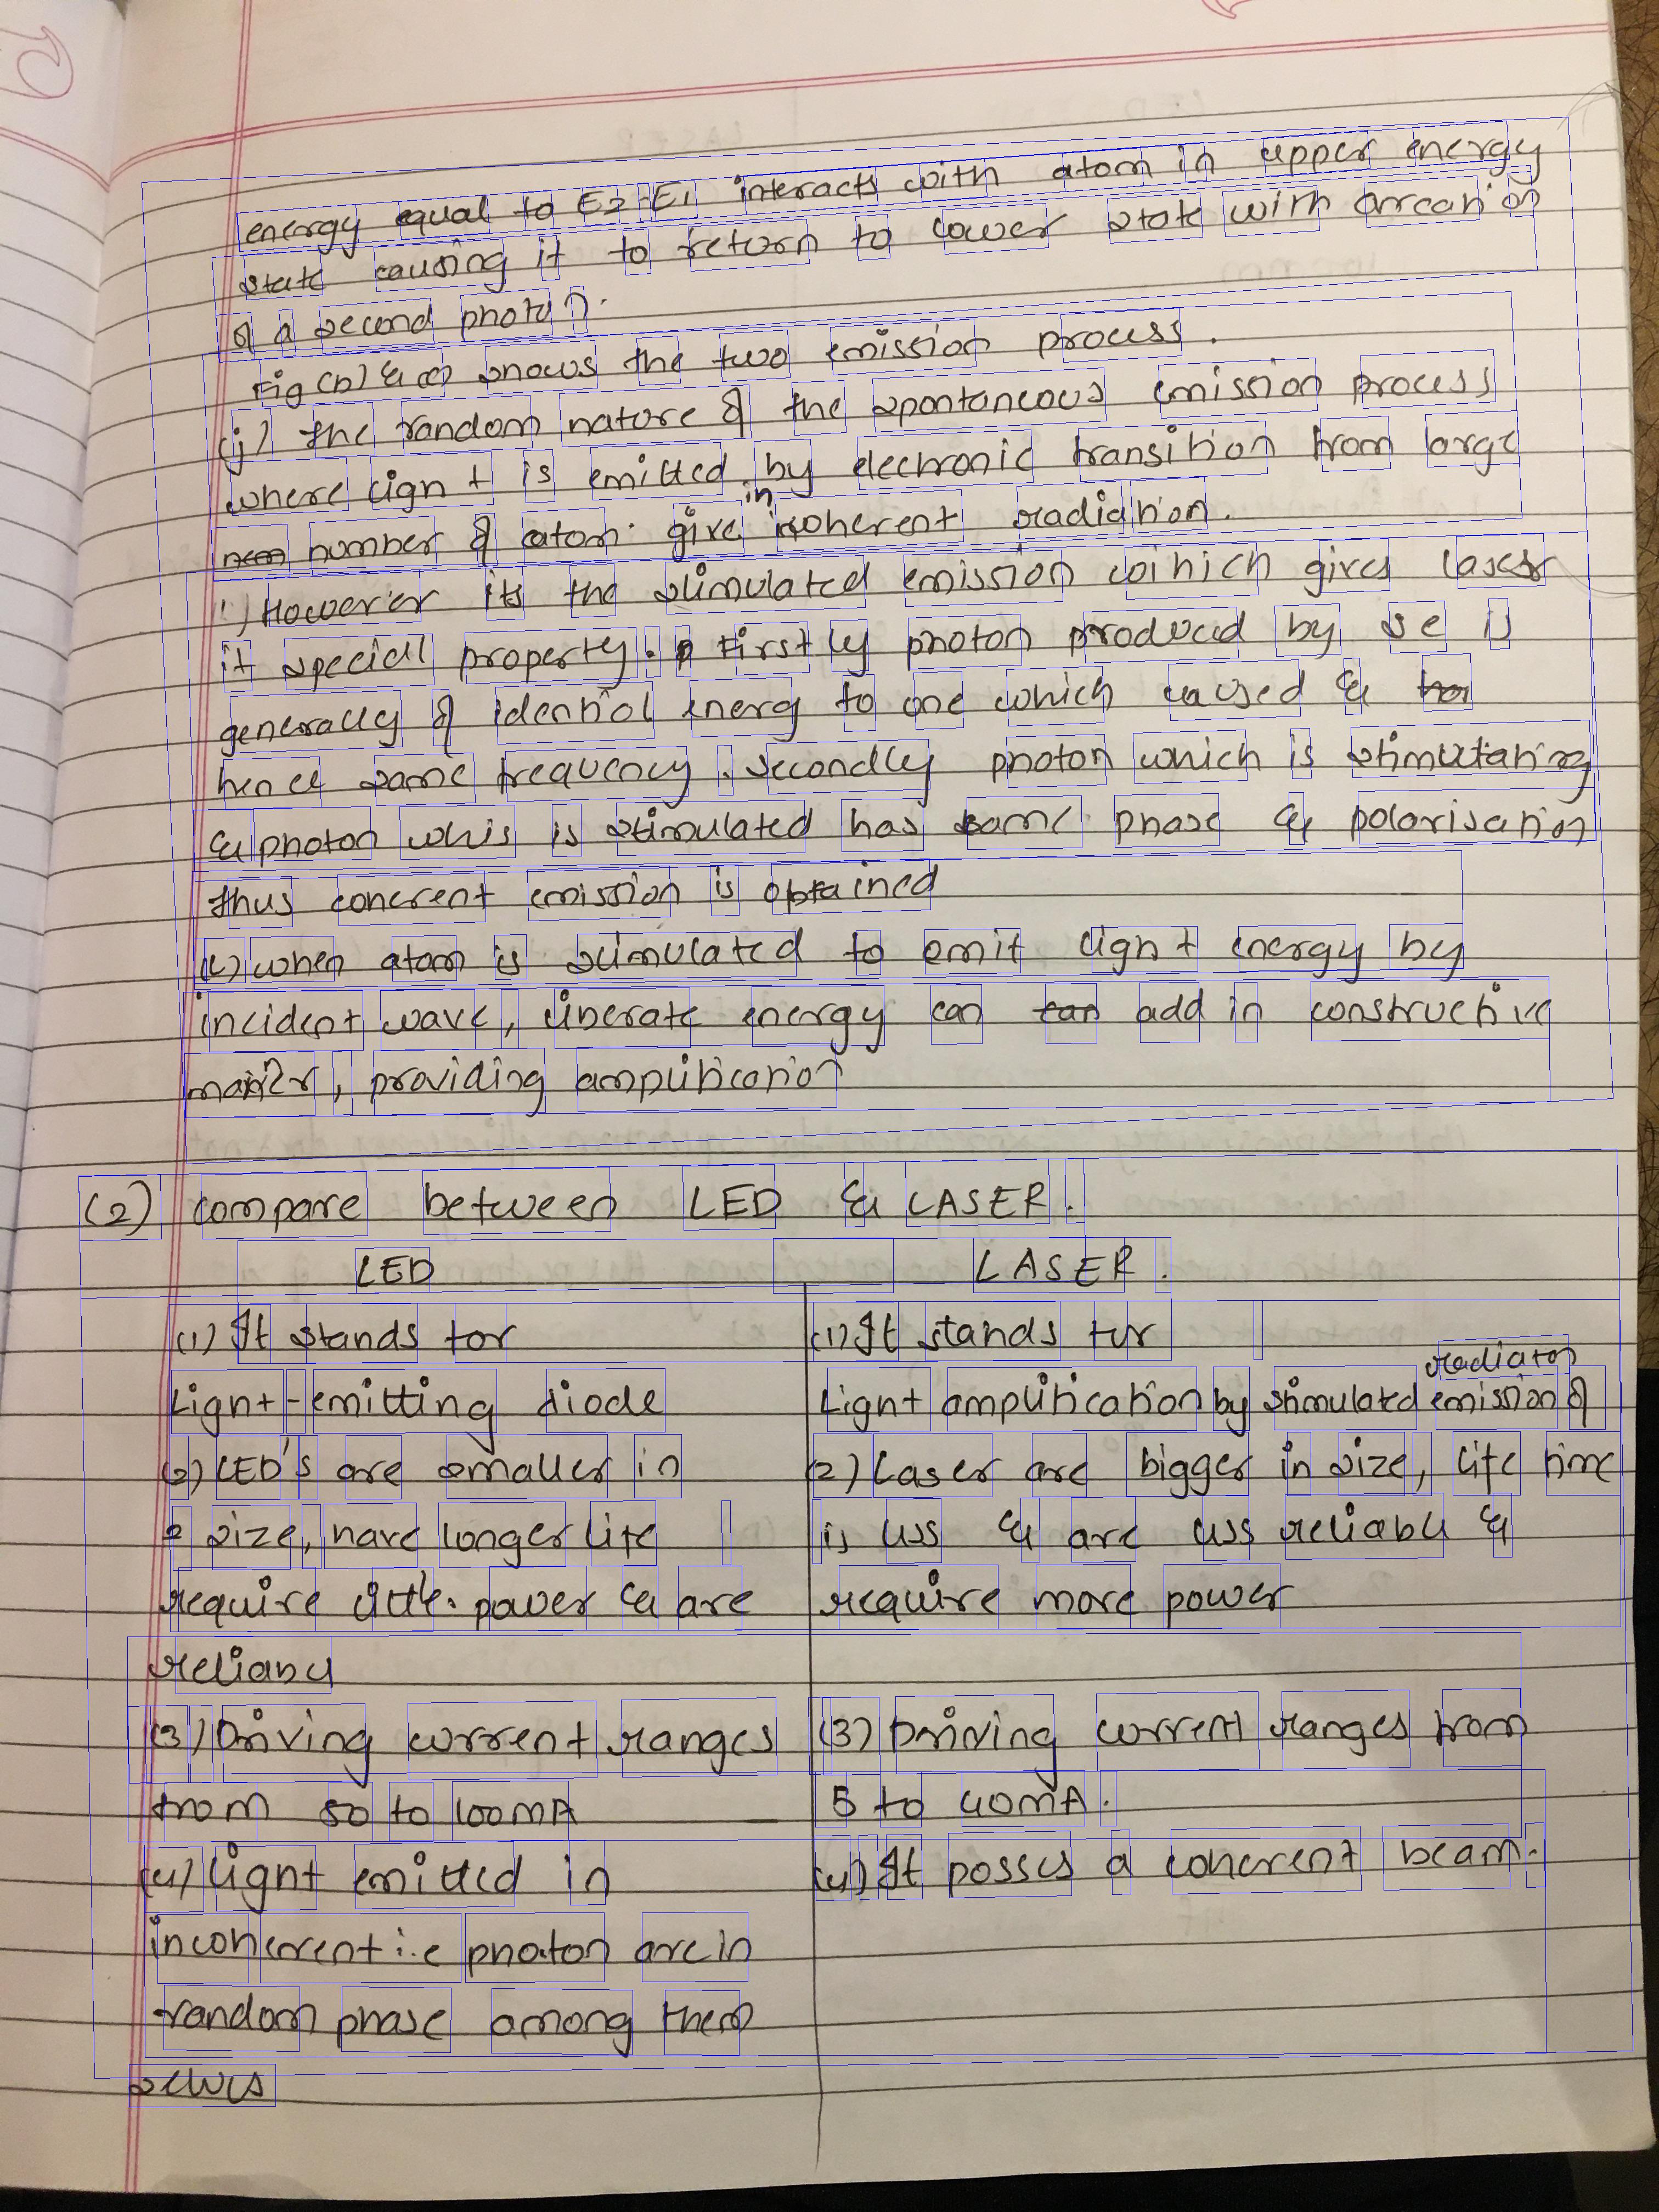 energy equal to E2-E1 interacts with atom in upper energy
state causing it to return to lower state with creation
of a second photon.
Fig (b) & (c) shows the two emission process.
(j) The random nature of the spontaneous emission process
where light is emitted by electronic transition from large
number of atom. give incoherent radiation.
However its the stimulated emission which gives laser
it special property. Firstly photon produced by se is
generally of identical energy to one which caused &
hence same frequency. Secondly photon which is stimulating
& photon whis is stimulated has same phase & polarisation
thus coherent emission is obtained
when atom is stimulated to emit light energy by
incident wave, liberate energy can add in constructive
manner, providing amplification
(2) compare between LED & LASER.
LED LASER.
(1) It stands for (1) It stands for
radiation
Light-emitting diode Light amplification by stimulated emission of
(2) LED's are smaller in (2) Laser are bigger in size, life time
size, have longer life is less & are less reliable &
require little. power & are require more power
reliable
(3) Driving current ranges (3) Driving current ranges from
from 50 to 100mA 5 to 40mA.
(4) Light emitted in (4) It posses a coherent beam.
incoherent i.e photon are in
random phase among them
selves